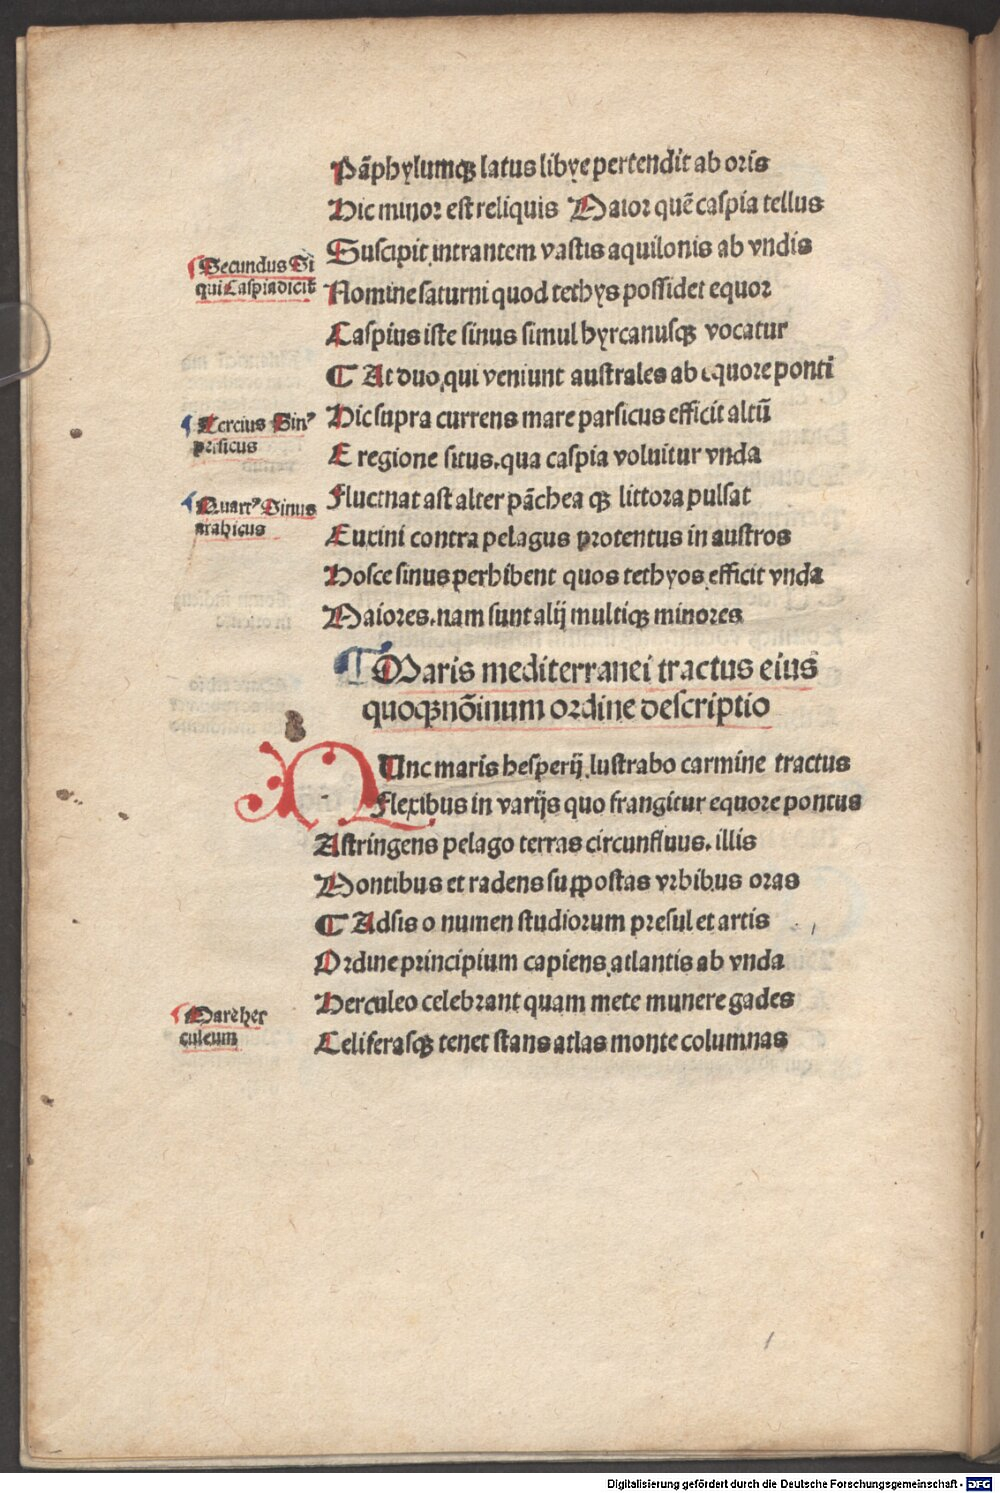 Pãphylumqꝫ latus libye pertendit ab oris
Hic minor est reliquis Maior quē caspia tellus
Suscipit intrantem vastis aquilonis ab vndis
Secundus Si
qui Caspia dicit̄
Nomine saturni quod tethys possidet equor
Caspius iste sinus simul hyrcanusqꝫ vocatur
¶ At duo qui veniunt australes ab equore ponti
Tercius Sinꝰ
persicus
Hic supra currens mare parsicus efficit altū
E regione situs.qua caspia voluitur vnda
Quartꝰ Sinus
arabicus
Fluctnat ast alter pāchea qꝫ littora pulsat
Euxini contra pelagus protentus in austros
Hosce sinus perhibent quos tethyos efficit vnda
Maiores.nam sunt alij multiqꝫ minores
Maris mediterranei tractus eius
quoqꝫ nōinum ordine descriptio
NUnc maris hesperij lustrabo carmine tractus
Flexibus in varijs quo frangitur equore pontus
Astringens pelago terras circunfluus. illis
Montibus et radens suꝑpostas vrbibus oras
¶ Adsis o numen studiorum presul et artis
Ordine principium capiens atlantis ab vnda
Mare her
culeum
Herculeo celebrant quam mete munere gades
Celiferasqꝫ tenet stans atlas monte columnas
Digitalisierung gefördert durch die Deutsche Forschungsgemeinschaft - DFG